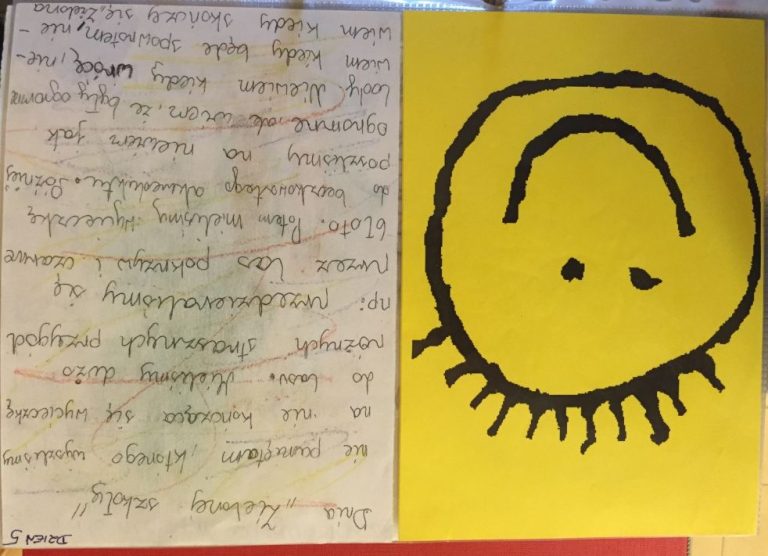 DZIEŃ 5
Dnia „Zielonej szkoły”
nie pamiętam, którego wyszliśmy
na nie kończąca się wycieczkę
do lasu. Mieliśmy dużo
różnych strasznych przygód
np: przedzieraliśmy się
przez las pokrzyw i czarne
błoto. Potem mieliśmy wycieczkę
do beczkowatego akweduktu. Później
poszliśmy na niewiem jak
ogromne ale wiem, że były ogromne
lody Niewiem kiedy wrócę, nie-
wiem kiedy będe spowrotem, nie-
wiem kiedy skończy się, Zielona